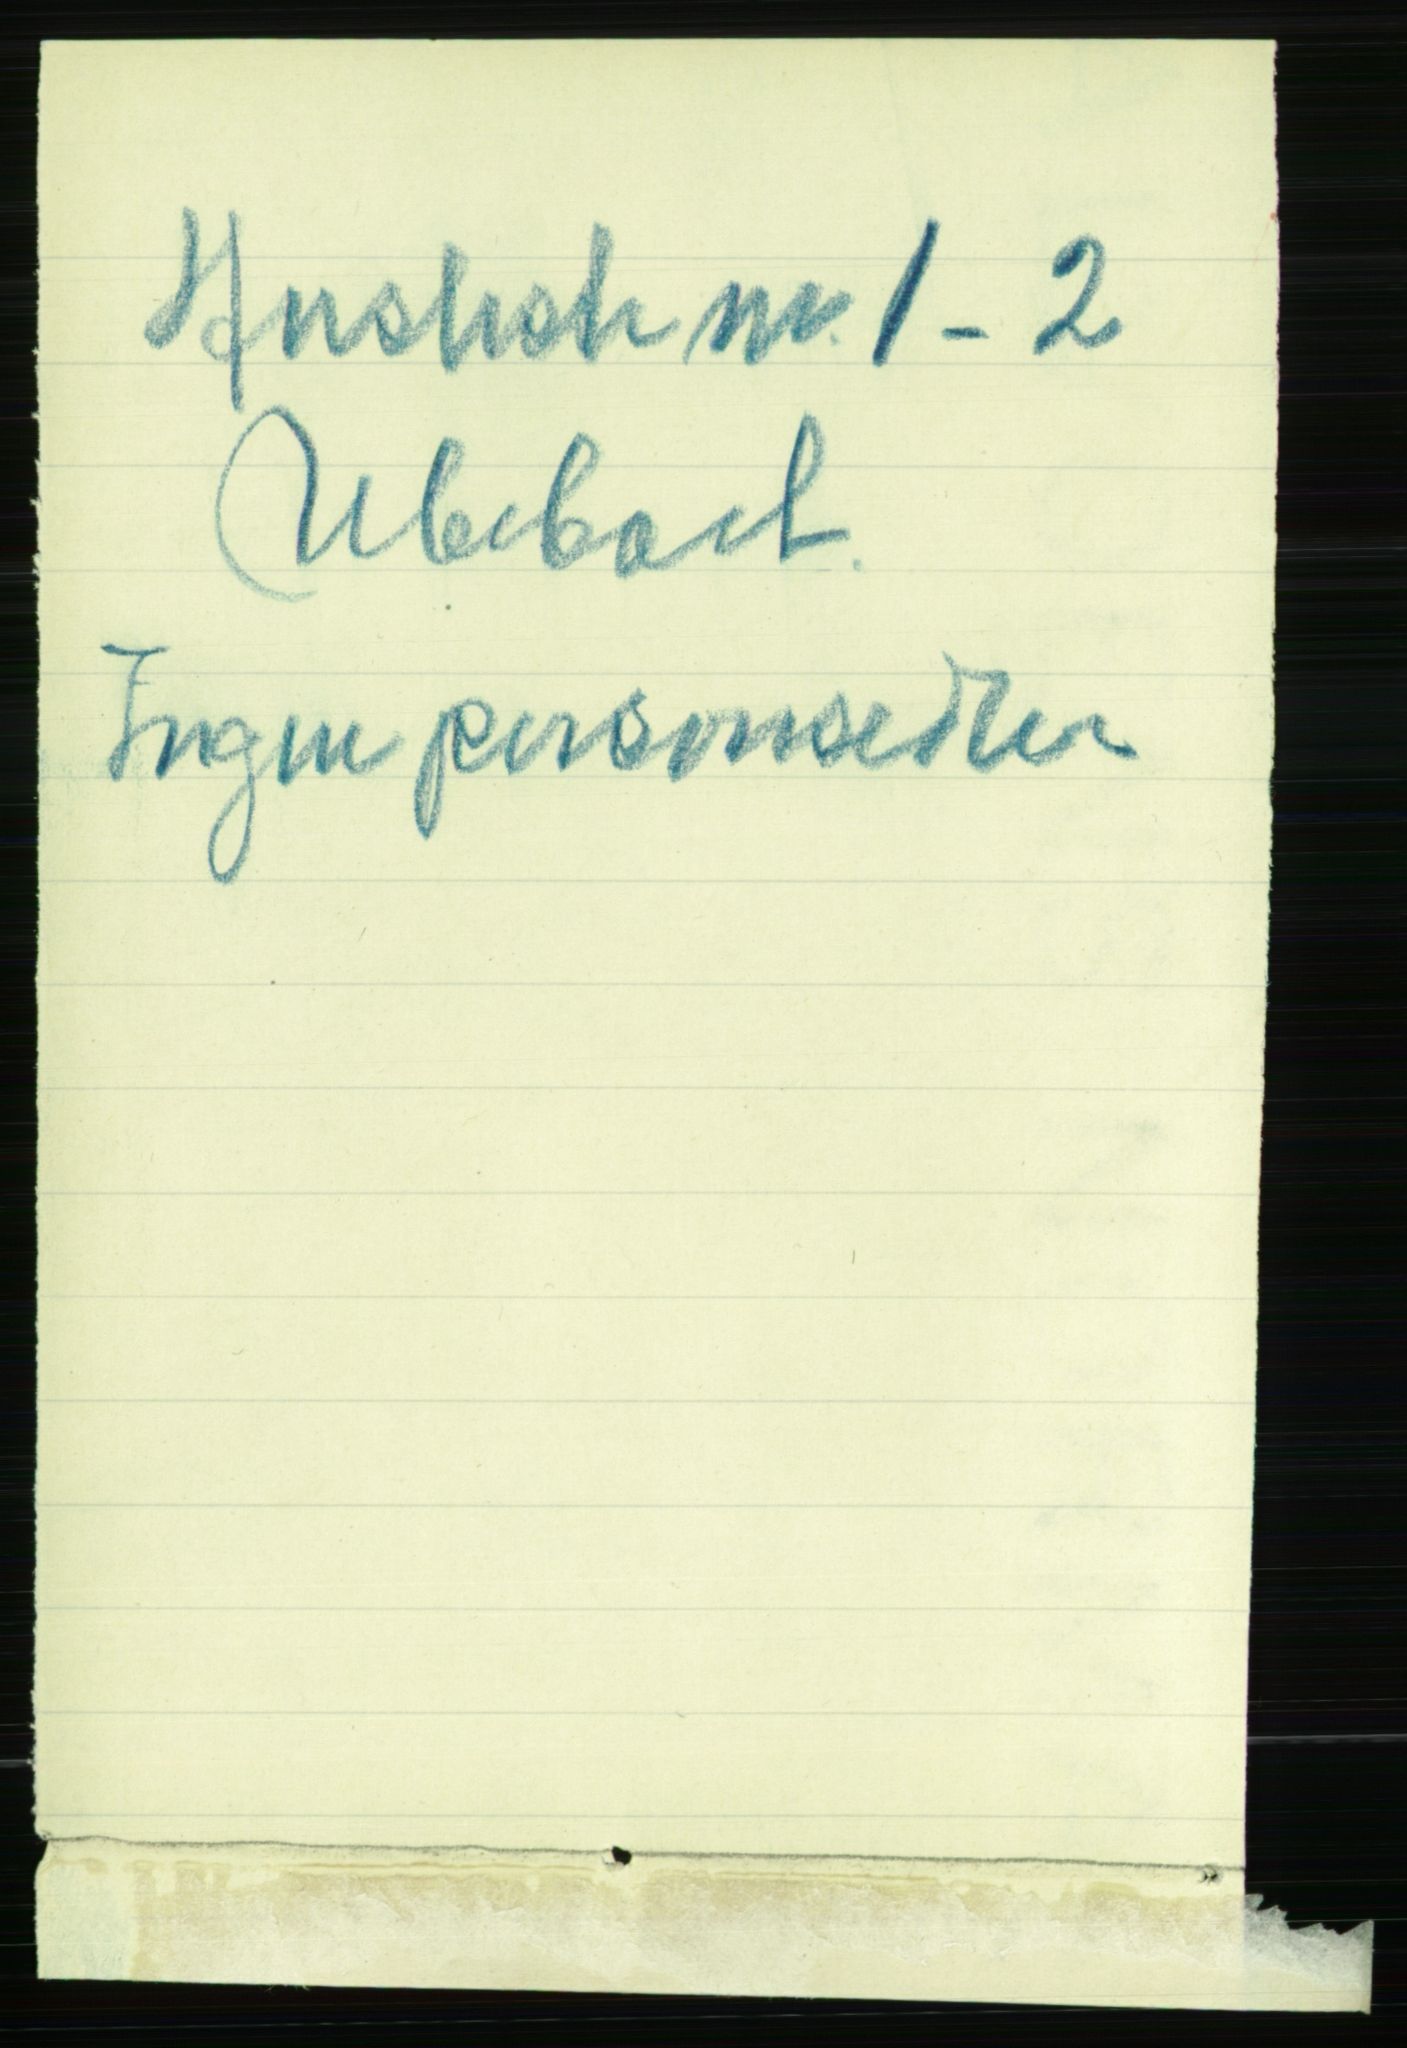 Husliste nr. 1 - 2
Ubebodt.
Ingen personsedler